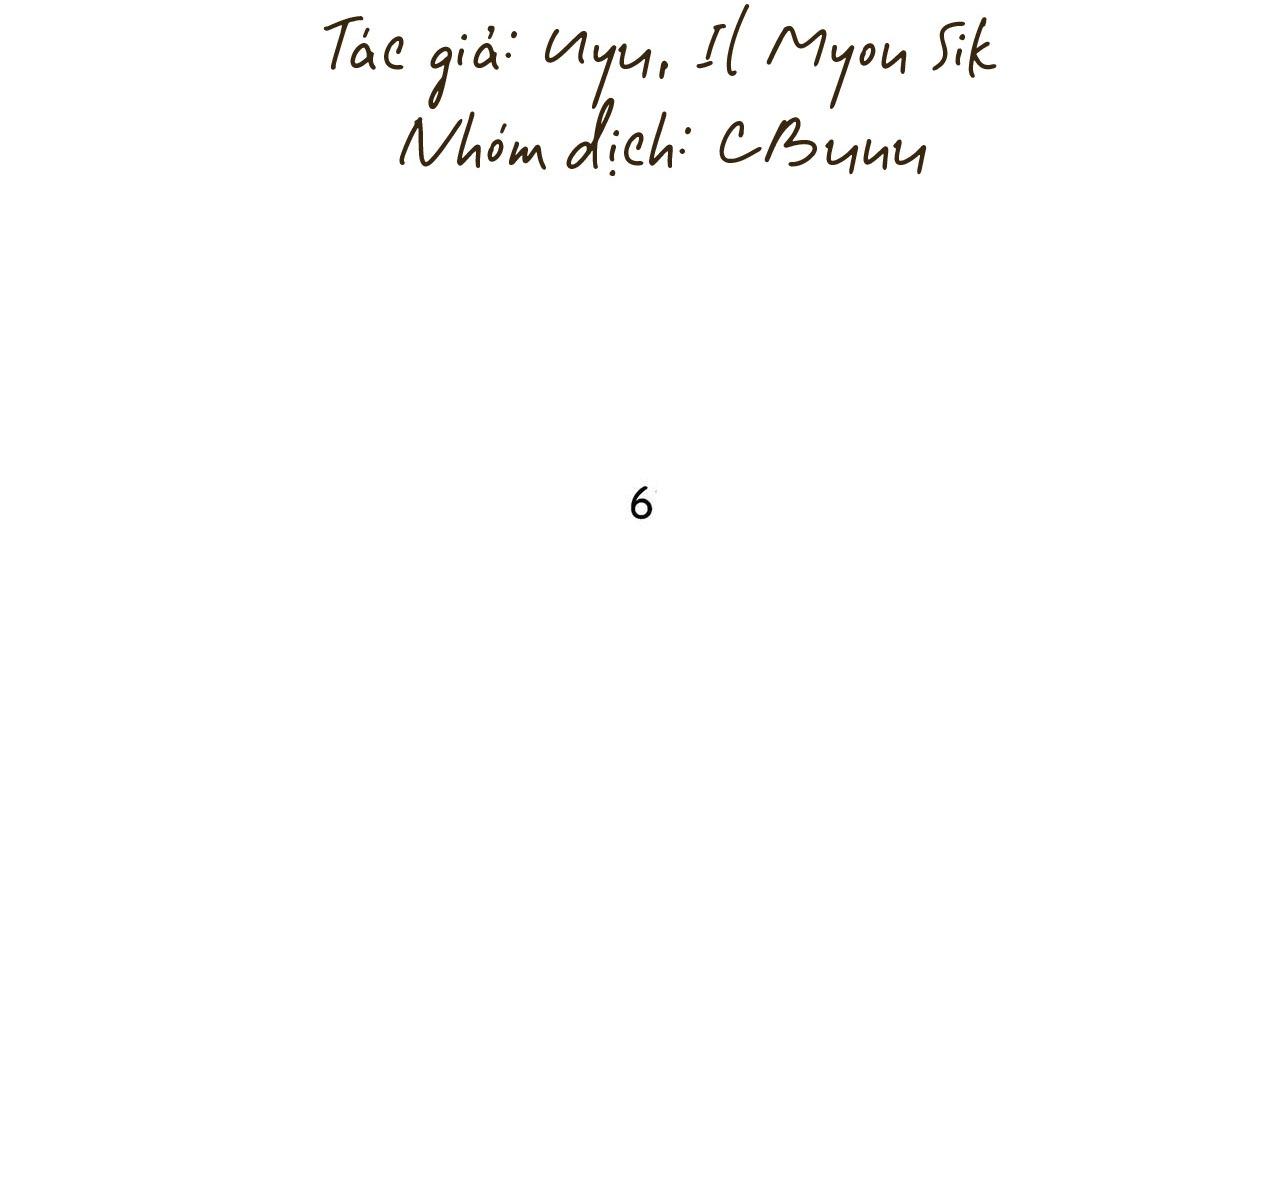 Tác giả: Uyu, Il Myon Sik
Nhóm dịch: CBuuu
6